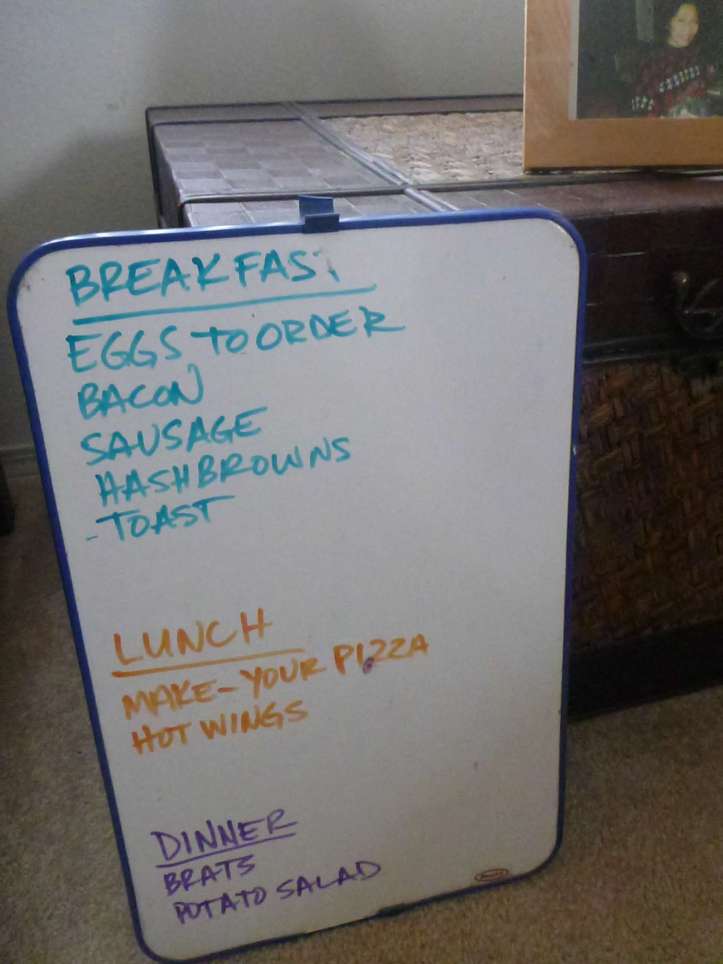 BREAKFAST
EGGS TO ORDER
BACON
SAUSAGE
HASHBROWNS
-TOAST
LUNCH
MAKE-YOUR PIZZA
HOT WINGS
DINNER
BRATS
POTATO SALAD